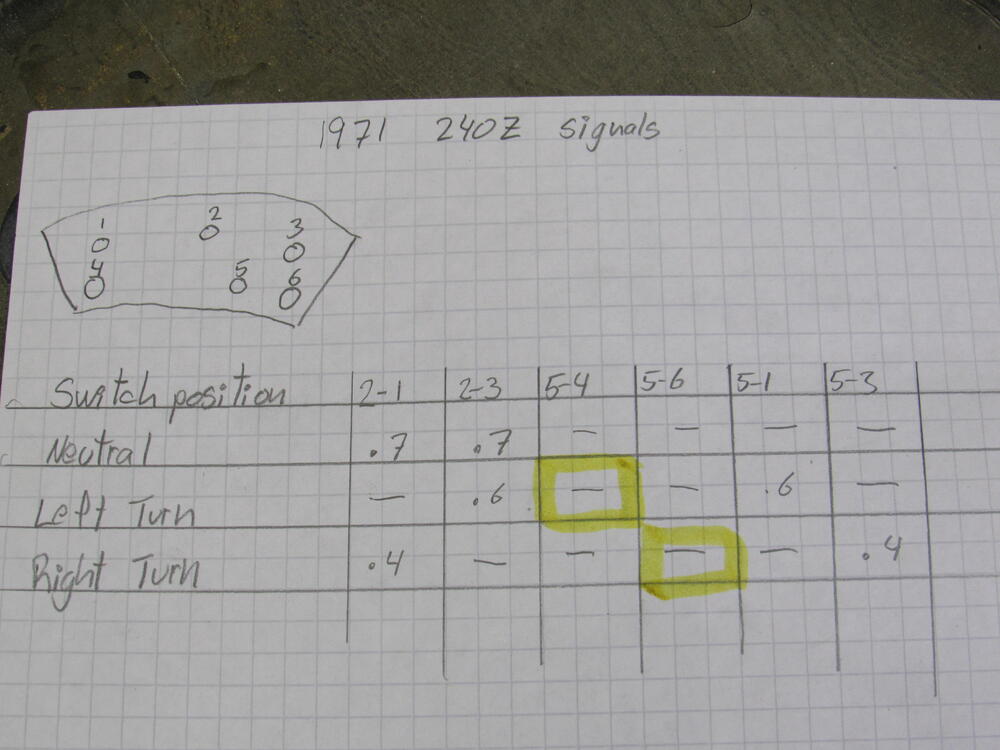 1971 240Z signals
1 2 3
4 5 6
Switch position 2-1 2-3 5-4 5-6 5-1 5-3
Neutral .7 .7 — — — —
Left Turn — .6 — — .6 —
Right Turn .4 — — — — .4